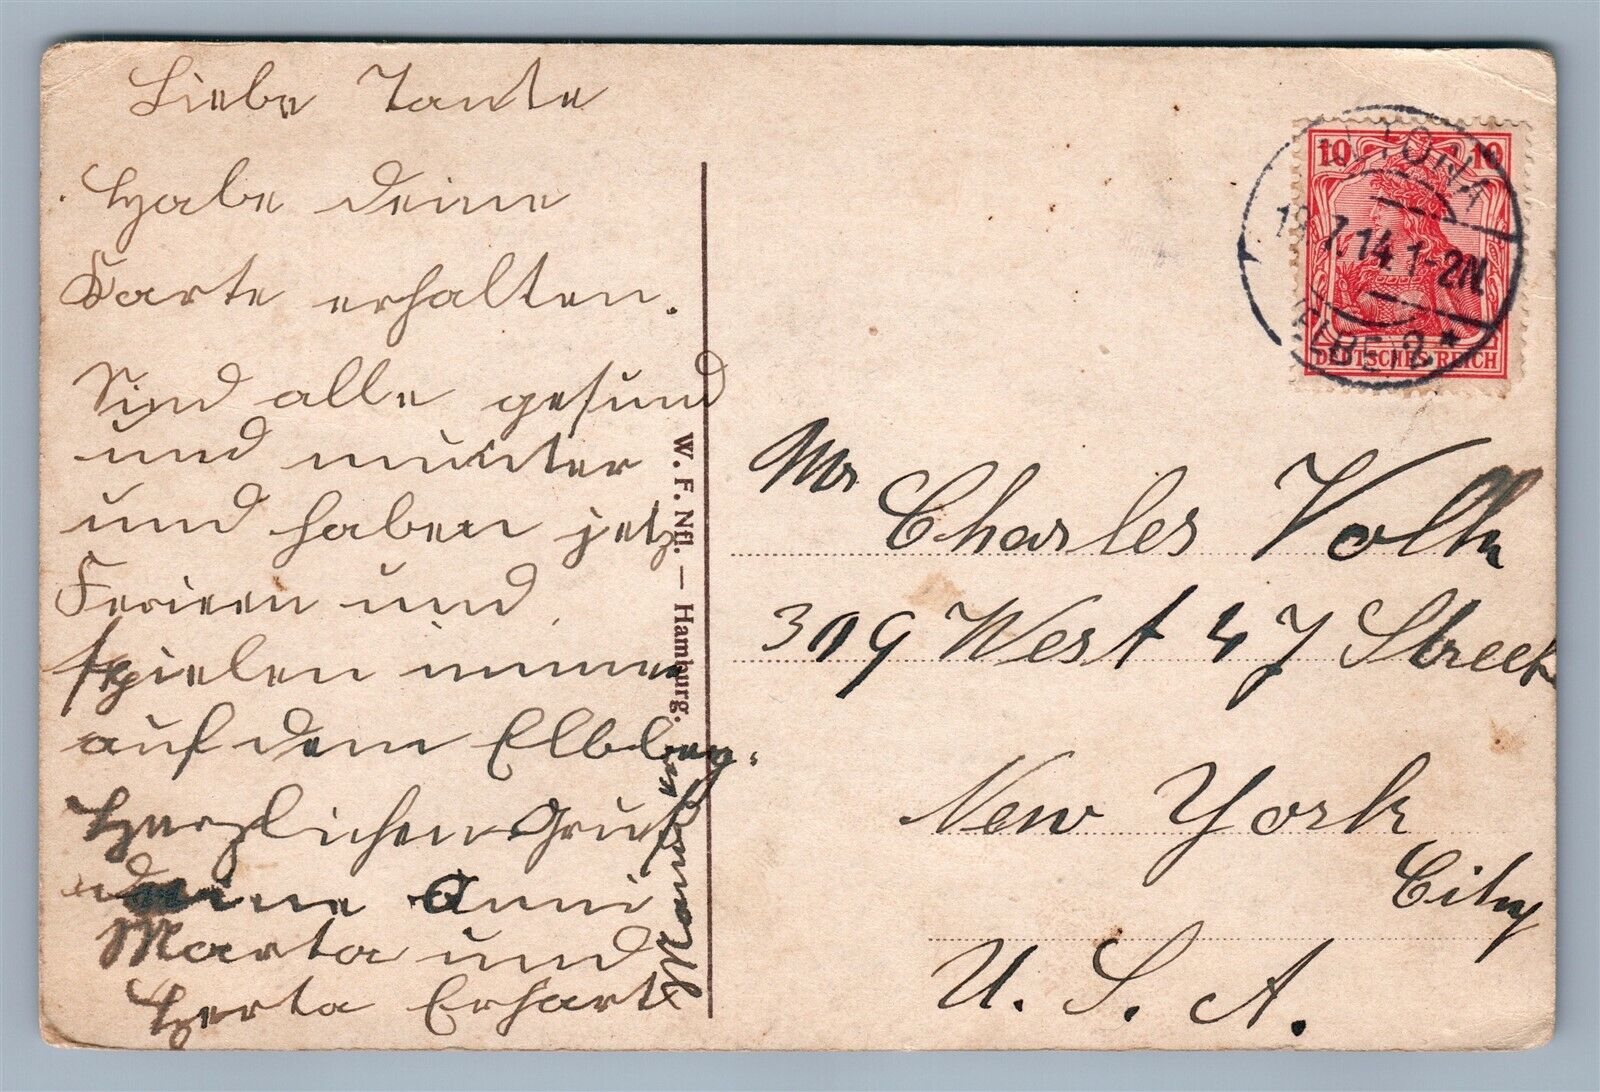 Liebe Tante
Habe deine
Karte erhalten.
Sind alle gesund
und munter
und haben jetz
Ferieen und
spielen immer
auf dem Elbberg.
Herzlichen Gruß
deine Anni
Marta und
Herta Erhart
W. F. Nfl. — Hamburg.
10 10
DEUTSCHES REICH
ALTONA
7.14.1-2N.
(ELBE) 2 *
Mr Charles Volk
319 West 47 Street
New York
City
U. S. A.